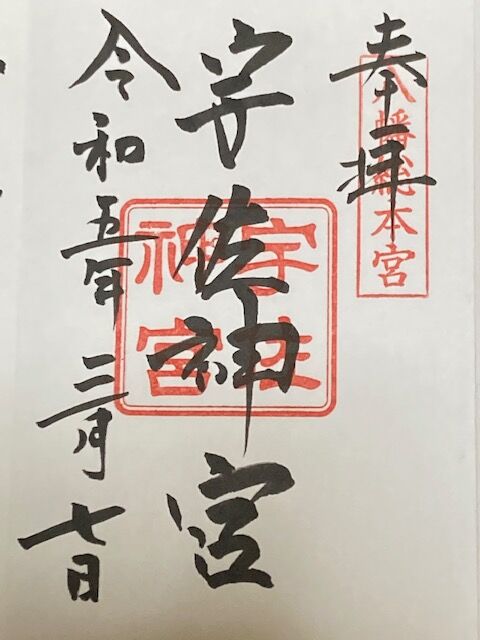 奉拝
八幡総本宮
宇佐神宮
宇佐
神宮
令和五年三月七日